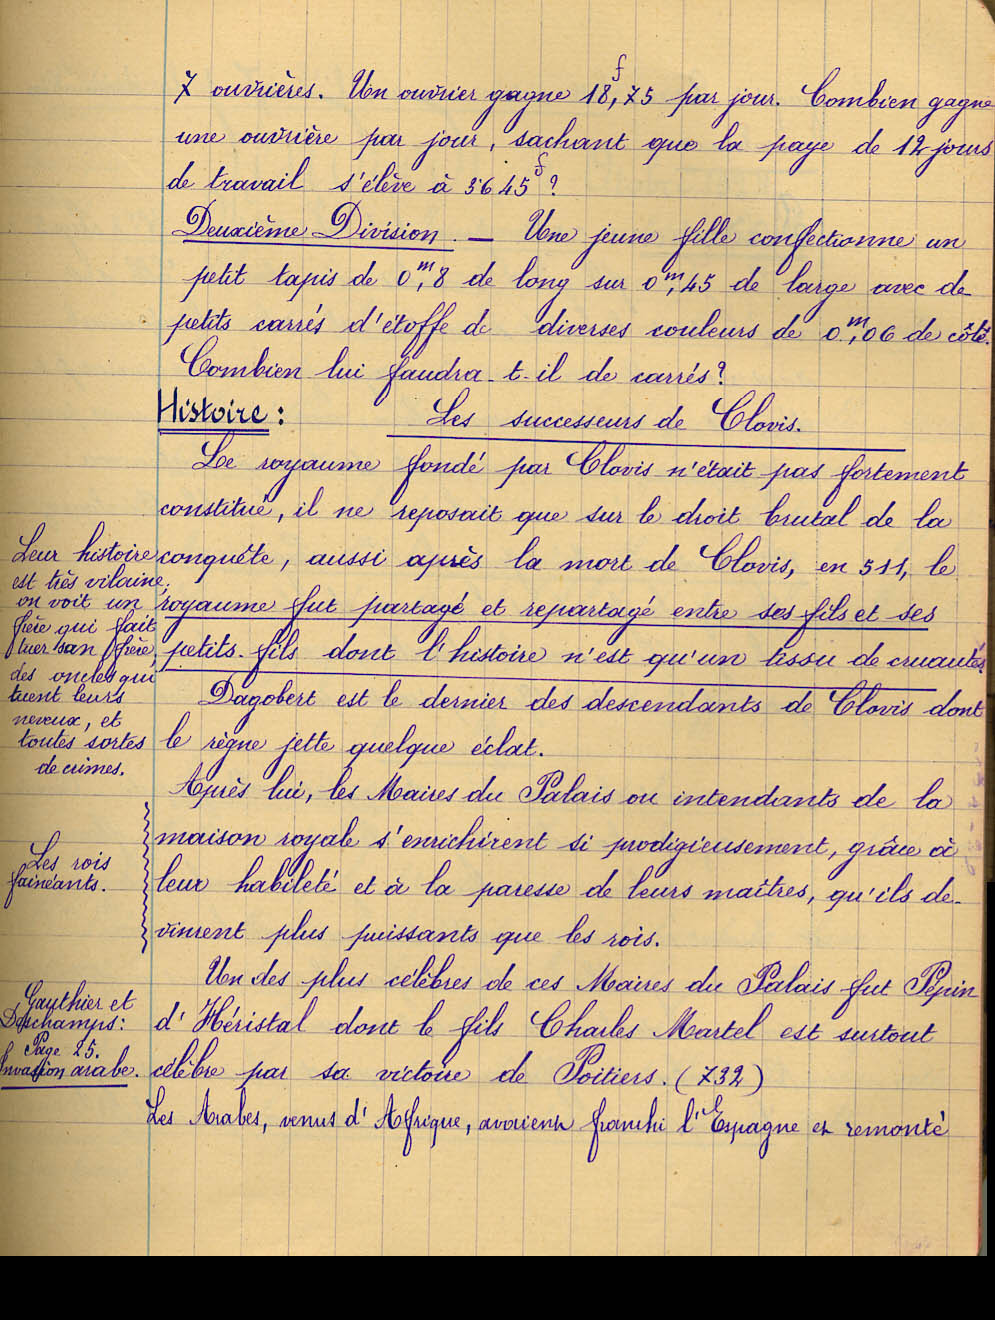 7 ouvrières. Un ouvrier gagne 18f,75 par jour. Combien gagne
une ouvrière par jour, sachant que la paye de 12 jours
de travail s'élève à 3645f ?
Deuxième Division. — Une jeune fille confectionne un
petit tapis de 0m,8 de long sur 0m,45 de large avec de
petits carrés d'étoffe de diverses couleurs de 0m,06 de côté.
Combien lui faudra-t-il de carrés ?
Histoire : Les successeurs de Clovis.
Le royaume fondé par Clovis n'était pas fortement
constitué, il ne reposait que sur le droit brutal de la
conquête, aussi après la mort de Clovis, en 511, le
royaume fut partagé et repartagé entre ses fils et ses
petits-fils dont l'histoire n'est qu'un tissu de cruautés.
Leur histoire
est très vilaine;
on voit un
frère qui fait
tuer son frère,
des oncles qui
tuent leurs
neveux, et
toutes sortes
de crimes.
Dagobert est le dernier des descendants de Clovis dont
le règne jette quelque éclat.
Après lui, les Maires du Palais ou intendants de la
maison royale s'enrichirent si prodigieusement, grâce à
leur habileté et à la paresse de leurs maîtres, qu'ils de-
vinrent plus puissants que les rois.
Les rois
fainéants.
Un des plus célèbres de ces Maires du Palais fut Pépin
d'Héristal dont le fils Charles Martel est surtout
célèbre par sa victoire de Poitiers. (732)
Gauthier et
Deschamps :
Page 25.
Invasion arabe.
Les Arabes, venus d'Afrique, avaient franchi l'Espagne et remonté